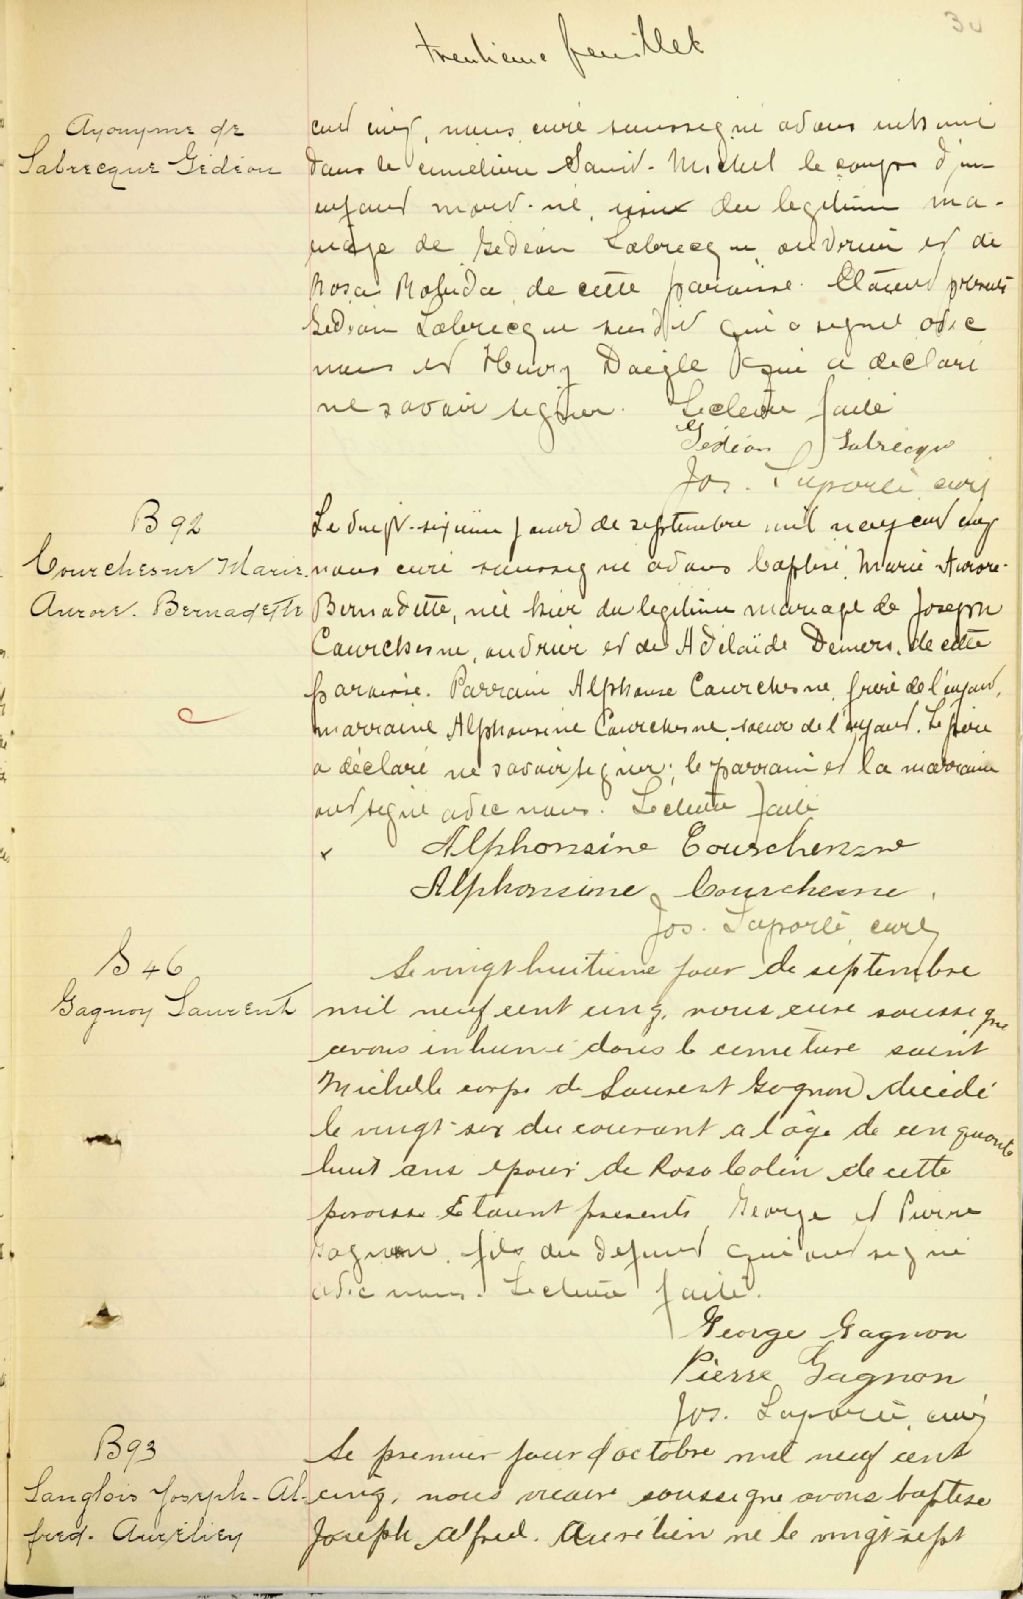 30
trentième feuillet
Anonyme de
Labrecque Gédéon
cent cinq, nous curé soussigné avons inhumé
dans le cimetière Saint-Michel le corps d'un
enfant mort-né, issu du légitime ma-
riage de Gédéon Labrecque ouvrier et de
Rosa Robida de cette paroisse. Etaient présents
Gédéon Labrecque susdit qui a signé avec
nous et Henry Daigle qui a déclaré
ne savoir signer. Lecture faite
Gédéon Labrecque
Jos. Laporte, curé
B 92
Courchesne Marie
Aurore. Bernadette
Le vingt-sixième jour de septembre mil neuf cent cinq
nous curé soussigné avons baptisé Marie Aurore-
Bernadette, née hier du légitime mariage de Joseph
Courchesne, ouvrier et de Adélaïde Demers, de cette
paroisse. Parrain Alphonse Courchesne, frère de l'enfant,
marraine Alphonsine Courchesne, soeur de l'enfant. Le père
a déclaré ne savoir signer; le parrain et la marraine
ont signé avec nous. Lecture faite
x Alphonsine Courchesne
Alphonsine Courchesne.
Jos. Laporte, curé
S 46
Gagnon Laurent
Le vingt huitieme jour de septembre
mil neuf cent cinq, nous cure soussigne
avons inhumé dans le cimetiere saint
Michel le corps de Laurent Gagnon décédé
le vingt-six du courant a l'âge de cinquante
huit ans epoux de Rosa Colin de cette
paroisse Etaient presents George et Pierre
Gagnon, fils du defunt qui ont signé
avec nous. Lecture faite.
George Gagnon
Pierre Gagnon
Jos. Laporte, curé
B 93
Langlois Joseph-Al-
fred. Aurélien
Le premier jour d'octobre mil neuf cent
cinq, nous vicaire soussigne avons baptise
Joseph, Alfred. Aurélien ne le vingt-sept